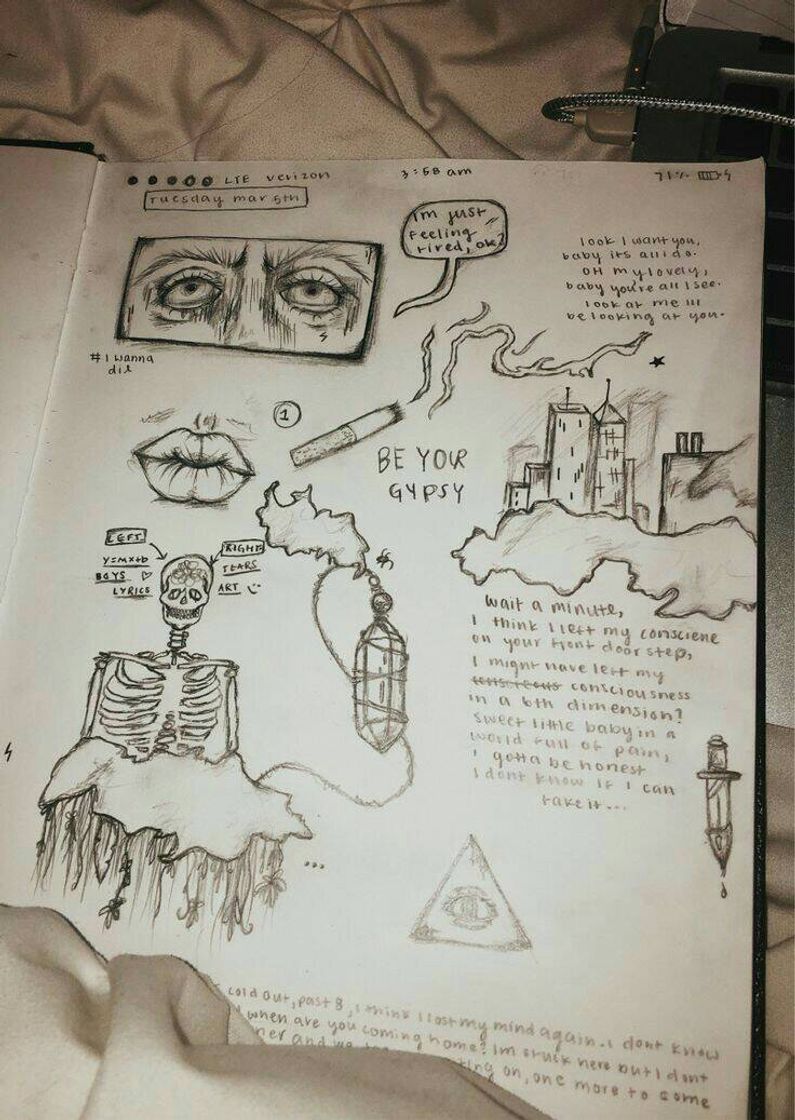 LTE verizon 3:58 am 71%
Tuesday mar 5th
Im just
feeling
tired, ok?
look I want you,
baby its all i do.
OH my lovely,
baby you're all I see.
look at me ill
be looking at you.
#I wanna
die
1
BE YOUR
GYPSY
LEFT
y=mx+b
BOYS
LYRICS
RIGHT
TEARS
ART
wait a minute,
I think I left my consciene
on your front door step,
I might have left my
consciousness
in a 6th dimension?
sweet little baby in a
world full of pain,
i gotta be honest
I dont know if I can
take it...
...
cold out, past 8, i think I lost my mind again. i dont know
when are you coming home? Im stuck here but I dont
ner and we on, one more to some